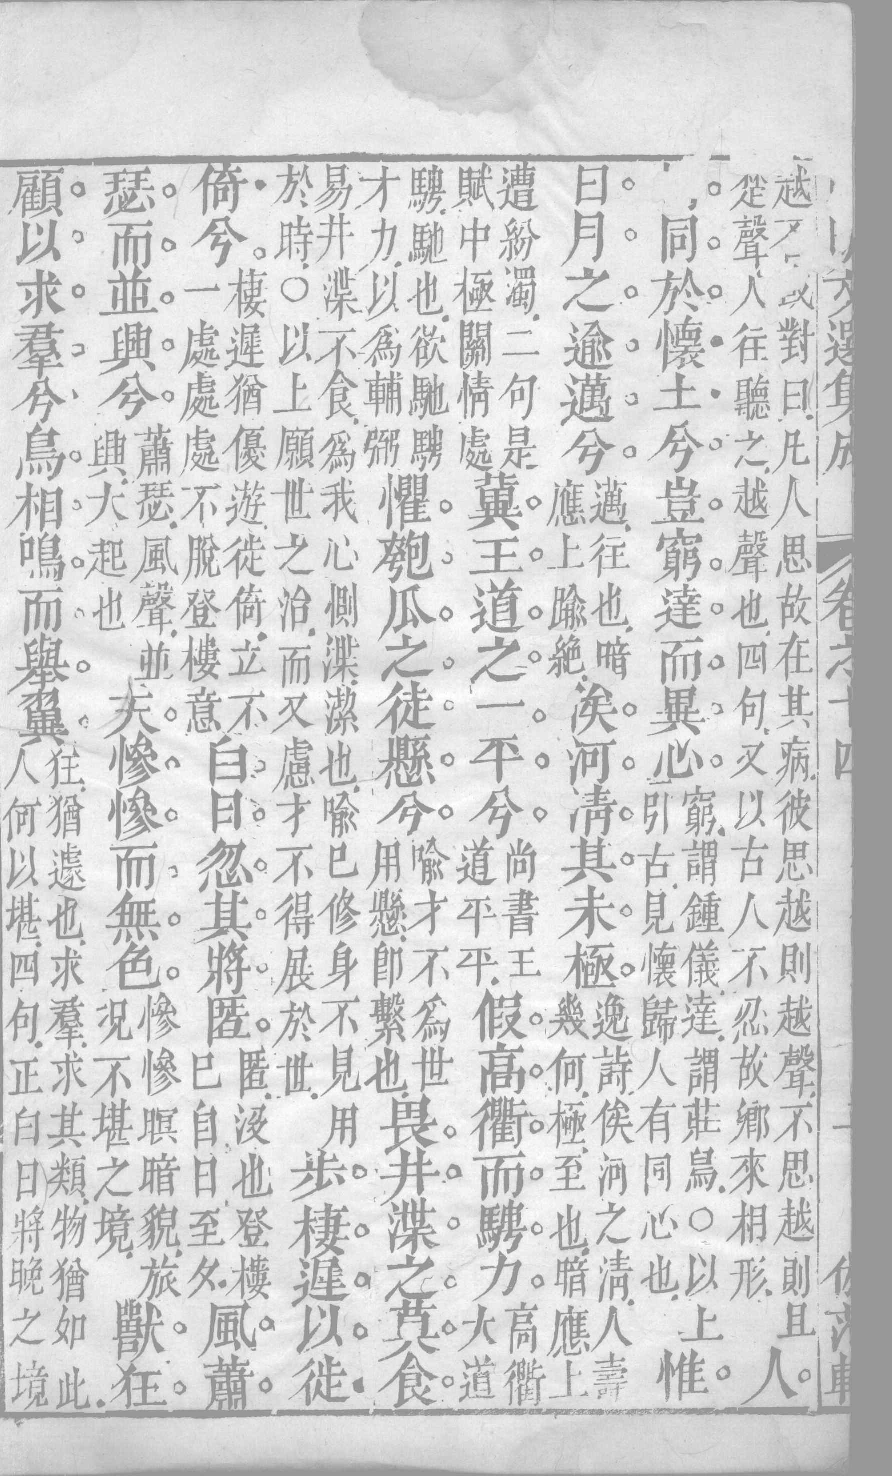 文選集成 卷之十四
越 或對曰凡人思故在其病彼思越則越聲不思越則且
楚聲人往聽之越聲也四句又以古人不忍故鄉來相形
人
同於懷土兮豈窮達而異心
窮謂鍾儀達謂莊舄○以上
引古見懷歸人有同心也
惟
日月之逾邁兮
邁往也暗
應上踰絶
俟河清其未極
逸詩俟河之清人壽
幾何極至也暗應上
遭紛濁二句是
賦中極關情處
冀王道之一平兮
尚書王
道平平
假高衢而騁力
高衢
大道
騁馳也欲馳騁
才力以爲輔弼
懼匏瓜之徒懸兮
喻才不爲世
用懸卽繫也
畏井渫之莫食
易井渫不食爲我心惻渫潔也喻巳修身不見用
於時○以上願世之治而又慮才不得展於世
步棲遲以徙
倚兮
棲遲猶優遊徙倚立不
一處處處不脫登樓意
白日忽其將匿
匿沒也登樓
巳自日至夕
風蕭
瑟而並興兮
蕭瑟風聲並
興大起也
天慘慘而無色
慘慘暝暗貌旅
況不堪之境
獸狂
顧以求羣兮鳥相鳴而舉翼
狂猶遽也求羣求其類物猶如此
人何以堪四句正白日將晚之境